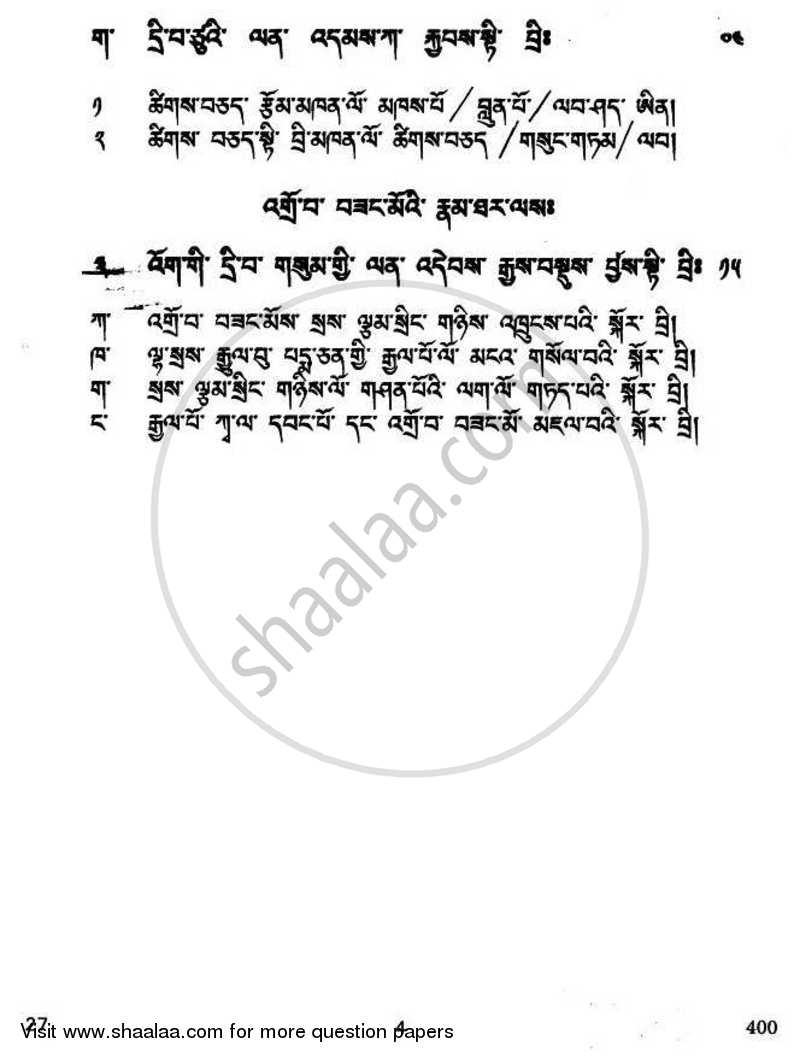 ག་ དྲི་བ་ཙུའི་ ལན་ འདམས་ཀ་ རྐྱབས་སྟི་ བྲིཿ ༠༤
༡ ཚིགས་བཅད་ རྩོམ་མཁན་ལོ་ མཁས་པོ / བླུན་པོ་ / ལབ་ཤད་ ཨིན།
༢ ཚིགས་ བཅད་སྟི་ བྲི་མཁན་ལོ་ ཚིགས་བཅད / གསུང་གཏམ / ལབ།
འགྲོ་བ་ བཟང་མོའི་ རྣམ་ཐར་ལསཿ
༣ འོག་གི་ དྲི་བ་ གསུམ་གྱི་ ལན་ འདེབས་ རྒྱས་བསྡུས་ ཕྱས་སྟི་ བྲིཿ ༡༥
ཀ་ འགྲོ་བ་ བཟང་མོས་ སྲས་ ལྕམ་སྲིང་ གཉིས་ འཁྲུངས་པའི་ སྐོར་ བྲི།
ཁ་ ལྷ་སྲས་ རྒྱུལ་བུ་ པདྨ་ཅན་གྱི་ རྒྱལ་པོ་ལོ་ མངའ་ གསོལ་བའི་ སྐོར་ བྲི།
ག་ སྲས་ ལྕམ་སྲིང་ གཉིས་ལོ་ གཤན་པོའི་ ལག་ལོ་ གཏད་པའི་ སྐོར་ བྲི།
ང་ རྒྱལ་པོ་ ཀཱ་ལ་ དབང་པོ་ དང་ འགྲོ་བ་ བཟང་མོ་ མཇལ་བའི་ སྐོར་ བྲི།
shaalaa.com
27 4 400
Visit www.shaalaa.com for more question papers